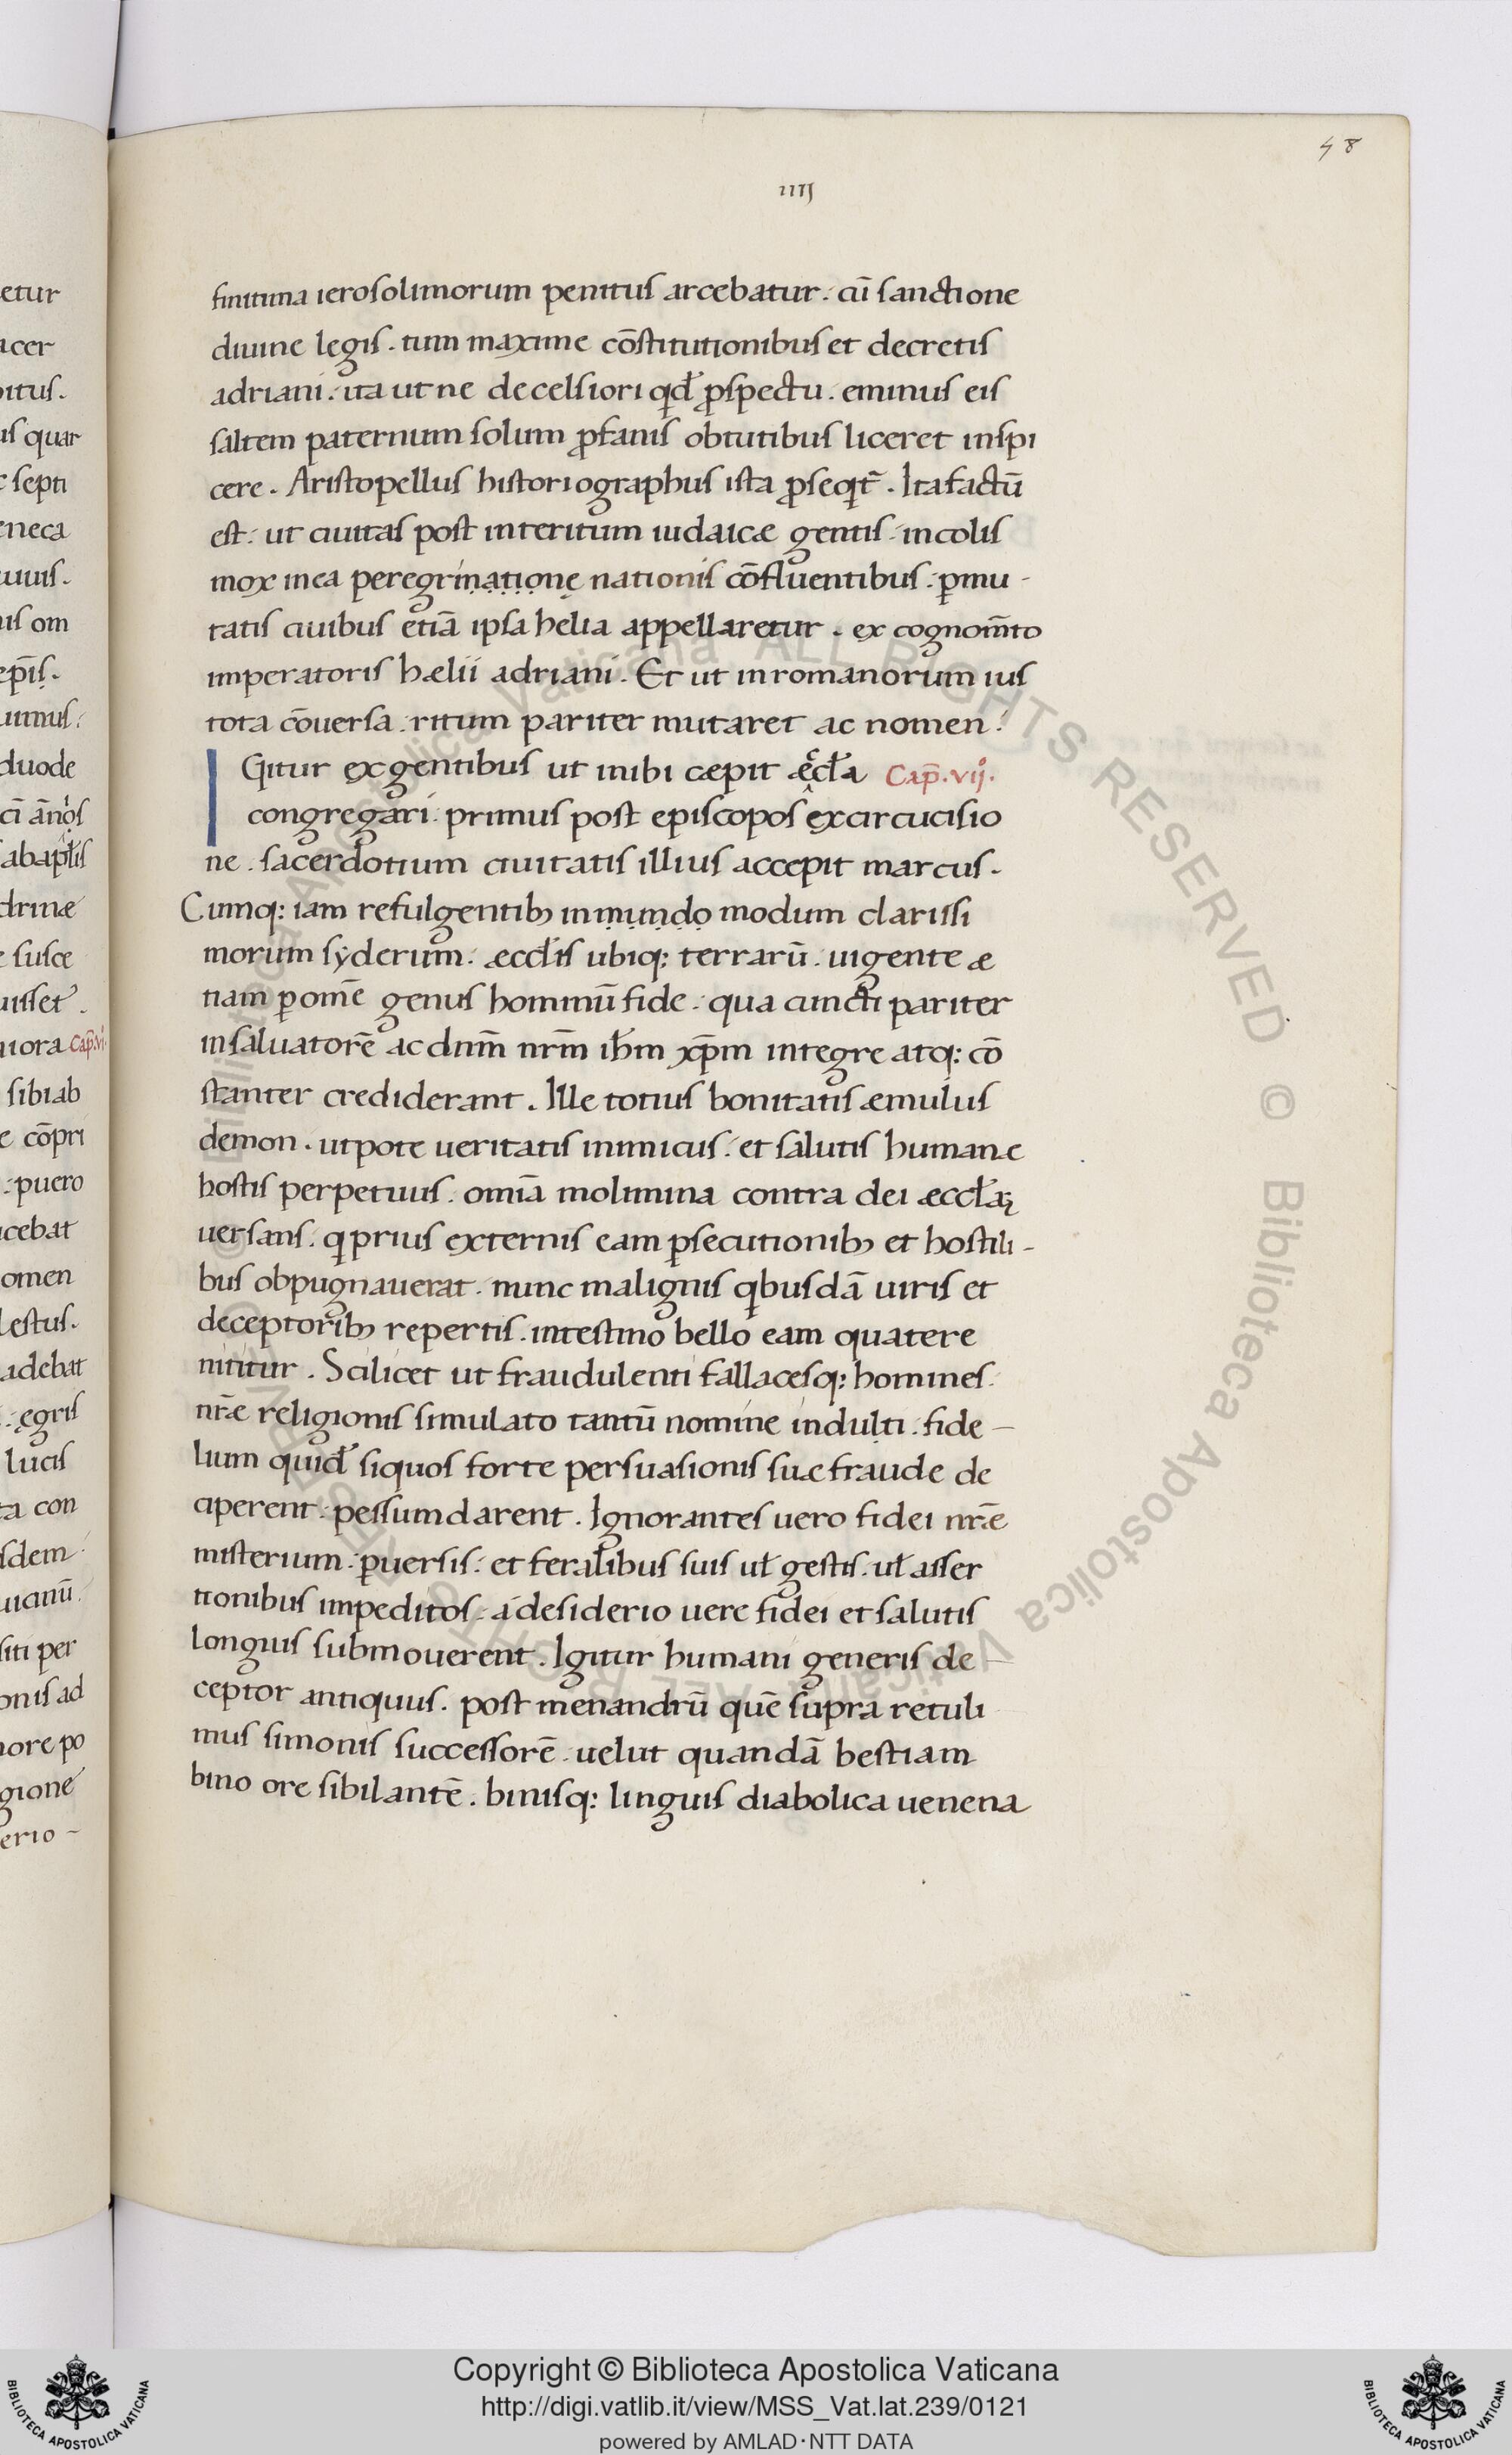 58
IIIJ
finitima ierosolimorum penitus arcebatur. cū sanctione
diuine legis. tum maxime cōstitutionibus et decretis
adriani. ita ut ne decelsiori qđ ꝓspectu. eminus eis
saltem paternum solum ꝓfanis obtutibus liceret inspi
cere. Aristopellus historiographus ista ꝓseqt̄. Ita factū
est. ut ciuitas post interitum iudaicæ gentis. incolis
mox inea peregrinạṭịọṇẹ nationis cōfluentibus. ꝑmu-
tatis ciuibus etiā ipsa helia appellaretur. ex cognom̄to
imperatoris hælii adriani. Et ut inromanorum ius
tota cōuersa. ritum pariter mutaret ac nomen.
IGitur exgentibus ut inibi cæpit æccła Cap̄.vijº.
congregari. primus post episcopos excircucisio
ne. sacerdotium ciuitatis illius accepit marcus.
Cumq: iam refulgentibꝫ inṃụṇḍọ modum clarissi
morum syderum. æcclis ubiq: terrarū. uigente æ
tiam ꝑ om̄e genus hominū fide. qua cuncti pariter
insaluatorē ac dnm̄ nrm̄ ihm xp̄m integre atq: cō
stanter crediderant. Ille totius bonitatis æmulus
demon. utpote ueritatis inimicus. et salutis humanæ
hostis perpetuus. omīa molimina contra dei æccłaꝝ
uersans. q prius externis eam ꝑsecutionibꝫ et hostili-
bus obpugnauerat. nunc malignis qbusdā uiris et
deceptoribꝫ repertis. intestino bello eam quatere
nititur. Scilicet ut fraudulenti fallacesq: homines.
nr̄æ religionis simulato tantū nomine indulṭi. fide-
lium quiđ siquos forte persuasionis suæ fraude de
ciperent. pessumdarent. Ignorantes uero fidei nr̄æ
misterium. ꝑuersis. et feralibus suis uł gestis. uł asser
tionibus impeditos. a desiderio uere fidei et salutis
longius submouerent. Igitur humani generis de
ceptor antiquus. post menandrū quē supra retuli
mus simonis successorē. uelut quandā bestiam
bino ore sibilantē. binisq: linguis diabolica uenena
etur
acer
itus.
is quar
septi
eneca
uuis.
is om
ep̄is.
duode
drinæ
e susce
uisset.
iora Cap̄.vi.
sibiab
e cōpri
puero
cebat
omen
lestus.
adebat
ęgris
lucis
ta con
sdem
siti per
onis ad
ore po
gione
erio-
© Biblioteca Apostolica Vaticana ALL RIGHTS RESERVED © Biblioteca Apostolica Vaticana ALL RIGHTS RESERVED
Copyright © Biblioteca Apostolica Vaticana
http://digi.vatlib.it/view/MSS_Vat.lat.239/0121
powered by AMLAD·NTT DATA
BIBLIOTECA APOSTOLICA VATICANA
BIBLIOTECA APOSTOLICA VATICANA